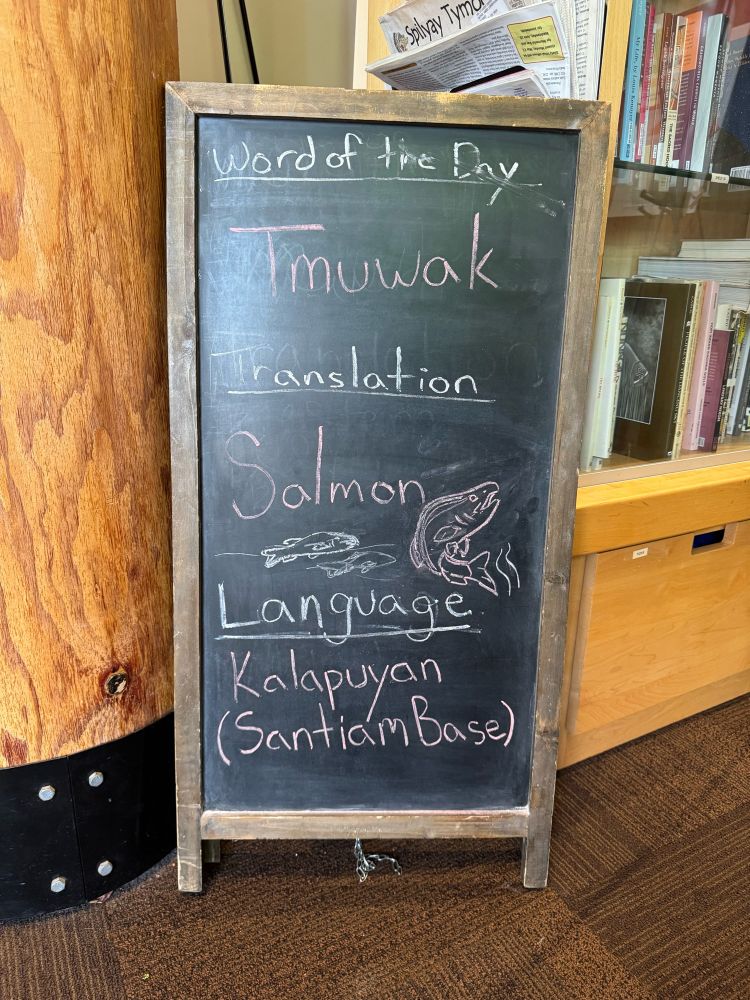 Spilyay Tymoo
Word of the Day
Tmuwak
Translation
Salmon
Language
Kalapuyan
(Santiam Base)